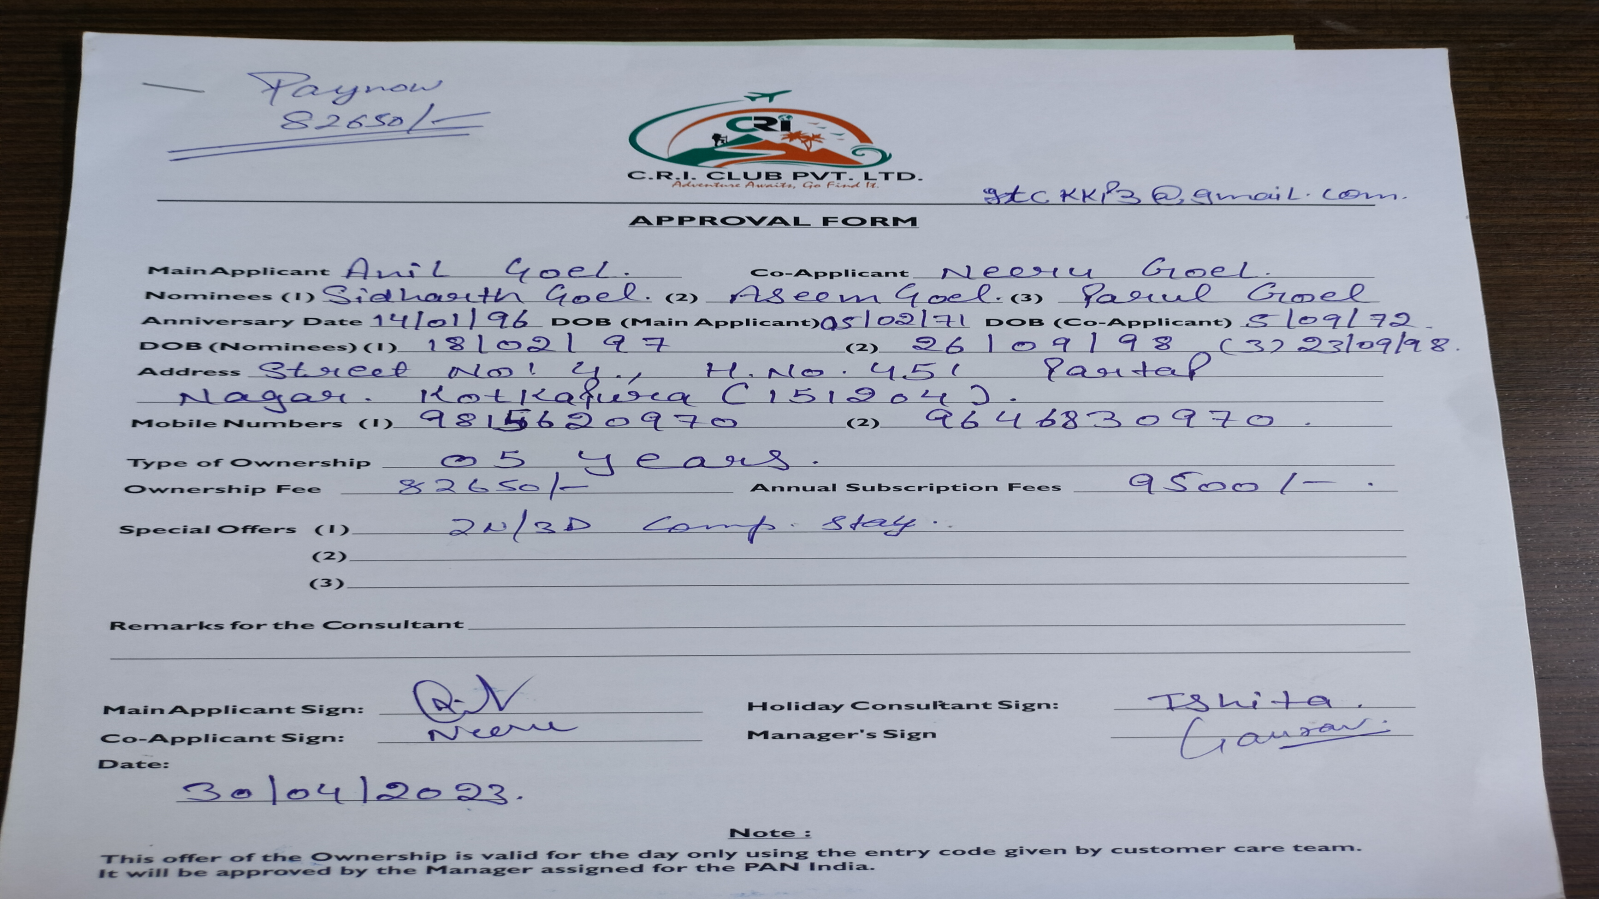 Paynow
82650/-
CRI
C.R.I. CLUB PVT. LTD.
Adventure Awaits, Go Find It.
gtckkp3@gmail.com.
APPROVAL FORM
Main Applicant Anil Goel. Co-Applicant Neeru Goel.
Nominees (1) Sidharth Goel. (2) Aseem Goel. (3) Parul Goel
Anniversary Date 14/01/96 DOB (Main Applicant) 05/02/71 DOB (Co-Applicant) 5/09/72.
DOB (Nominees) (1) 18/02/97 (2) 26/09/98 (3) 23/09/98.
Address Street No: 4., H.No. 451 Partap
Nagar. Kotkapura (151204).
Mobile Numbers (1) 9815620970 (2) 9646830970.
Type of Ownership 05 years.
Ownership Fee 82650/- Annual Subscription Fees 9500/-.
Special Offers (1) 2N/3D Comp. Stay..
(2)
(3)
Remarks for the Consultant
Main Applicant Sign: Holiday Consultant Sign: Ishita.
Co-Applicant Sign: Neeru Manager's Sign Gaurav.
Date:
30/04/2023.
Note :
This offer of the Ownership is valid for the day only using the entry code given by customer care team.
It will be approved by the Manager assigned for the PAN India.